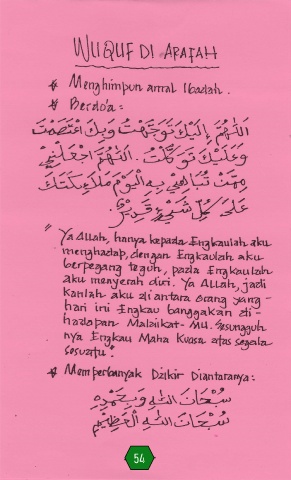 WUQUF DI ARAFAH
* Menghimpun amal Ibadah.
* Berdo'a:
اَللّٰهُمَّ إِلَيْكَ تَوَجَّهْتُ وَبِكَ اعْتَصَمْتُ
وَعَلَيْكَ تَوَكَّلْتُ . اَللّٰهُمَّ اجْعَلْنِيْ
مِمَّنْ تُبَاهِيْ بِهِ الْيَوْمَ مَلَائِكَتَكَ
عَلَى كُلِّ شَيْءٍ قَدِيْرٌ.
"Ya Allah, hanya kepada Engkaulah aku
menghadap, dengan Engkaulah aku
berpegang teguh, pada Engkaulah
aku menyerah diri. Ya Allah, jadi
kanlah aku diantara orang yang-
hari ini Engkau banggakan di-
hadapan Malaikat-Mu. Sesungguh
nya Engkau Maha Kuasa atas segala
sesuatu".
* Memperbanyak Dzikir Diantaranya:
سُبْحَانَ اللهِ وَبِحَمْدِهِ
سُبْحَانَ اللهِ الْعَظِيْمِ
54